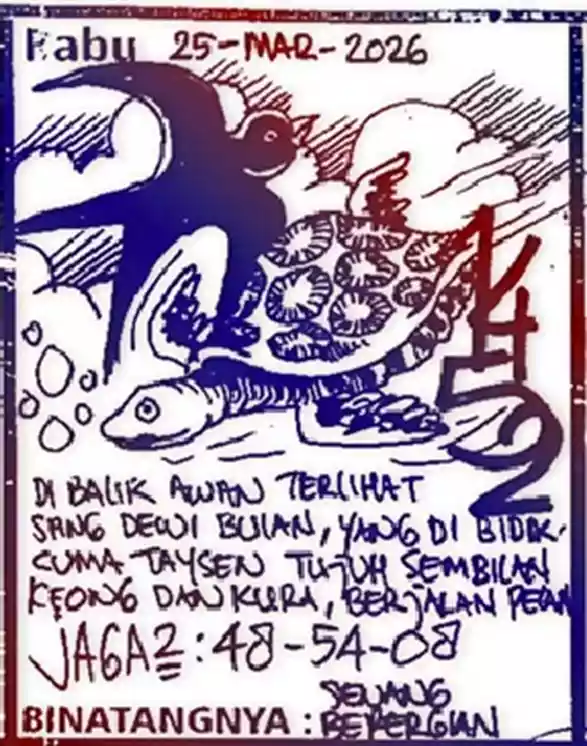 Rabu 25-MAR-2026
7452
DI BALIK AWAN TERLIHAT
SANG DEWI BULAN, YANG DI BIDIK.
CUMA TAYSEN TUJUH SEMBILAN
KEONG DAN KURA, BERJALAN PELAN
JAGA2 : 48-54-08
SENANG
BINATANGNYA : BEPERGIAN